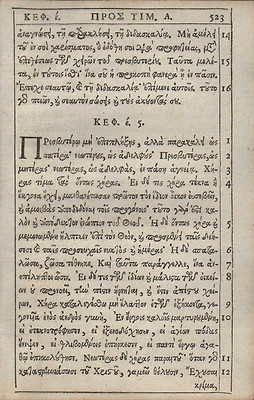 ΚΕΦ. έ. ΠΡΟΣ ΤΙΜ. Α. 523
ἀναγνώσει, τῇ παρακλήσει, τῇ διδασκαλίᾳ. Μὴ ἀμέλει 14
τοῦ ἐν σοὶ χαρίσματος, ὃ ἐδόθη σοι διὰ προφητείας, μετὰ
ἐπιθέσεως τῶν χειρῶν τοῦ πρεσβυτερίου. Ταῦτα μελέ- 15
τα, ἐν τούτοις ἴσθι· ἵνα σου ἡ προκοπὴ φανερὰ ᾖ ἐν πᾶσιν.
Ἔπεχε σεαυτῷ, καὶ τῇ διδασκαλίᾳ· ἐπίμενε αὐτοῖς. τοῦτο 16
γὰρ ποιῶν, καὶ σεαυτὸν σώσεις καὶ τοὺς ἀκούοντάς σου.
ΚΕΦ. έ. 5.
Πρεσβυτέρῳ μὴ ἐπιπλήξῃς, ἀλλὰ παρακάλει ὡς 1
πατέρα· νεωτέρους, ὡς ἀδελφούς· Πρεσβυτέρας, ὡς 2
μητέρας· νεωτέρας, ὡς ἀδελφὰς, ἐν πάσῃ ἁγνείᾳ. Χή- 3
ρας τίμα τὰς ὄντως χήρας. Εἰ δέ τις χήρα τέκνα ἢ 4
ἔκγονα ἔχει, μανθανέτωσαν πρῶτον τὸν ἴδιον οἶκον εὐσεβεῖν,
καὶ ἀμοιβὰς ἀποδιδόναι τοῖς προγόνοις· τοῦτο γάρ ἐστι κα-
λὸν καὶ ἀπόδεκτον ἐνώπιον τοῦ Θεοῦ. Ἡ δὲ ὄντως χήρα καὶ 5
μεμονωμένη ἤλπικεν ἐπὶ τὸν Θεὸν, καὶ προσμένει ταῖς δεήσε-
σι καὶ ταῖς προσευχαῖς νυκτὸς καὶ ἡμέρας. Ἡ δὲ σπατα- 6
λῶσα, ζῶσα τέθνηκε. Καὶ ταῦτα παράγγελλε, ἵνα ἀν- 7
επίληπτοι ὦσιν. Εἰ δέ τις τῶν ἰδίων καὶ μάλιστα τῶν οἰκεί- 8
ων οὐ προνοεῖ, τὴν πίστιν ἤρνηται, καὶ ἔστιν ἀπίστου χεί-
ρων. Χήρα καταλεγέσθω μὴ ἔλαττον ἐτῶν ἑξήκοντα, γε- 9
γονυῖα ἑνὸς ἀνδρὸς γυνὴ, Ἐν ἔργοις καλοῖς μαρτυρουμένη, 10
εἰ ἐτεκνοτρόφησεν, εἰ ἐξενοδόχησεν, εἰ ἁγίων πόδας
ἔνιψεν, εἰ θλιβομένοις ἐπήρκεσεν, εἰ παντὶ ἔργῳ ἀγα-
θῷ ἐπηκολούθησε. Νεωτέρας δὲ χήρας παραιτοῦ· ὅταν γὰρ 11
καταστρηνιάσωσι τοῦ Χριστοῦ, γαμεῖν θέλουσιν, Ἔχουσαι 12
κρίμα,